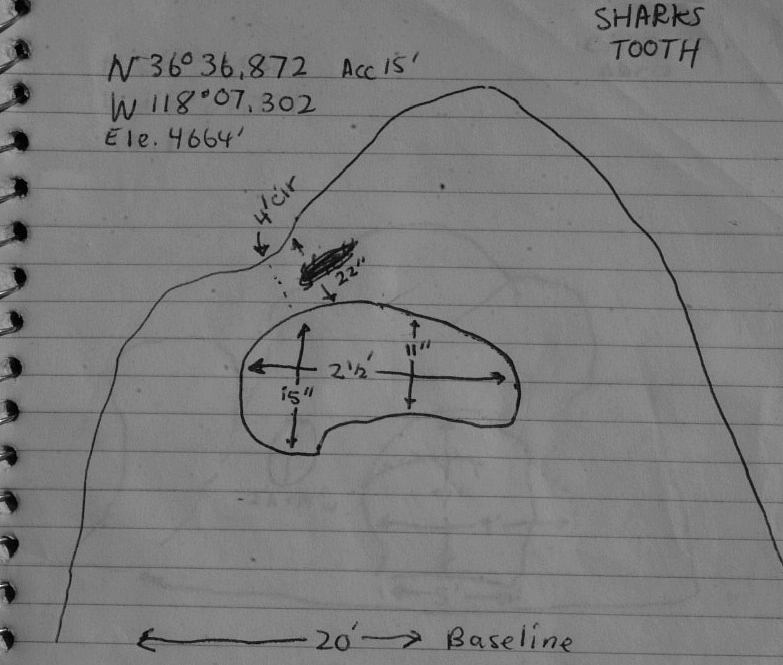 SHARKS
TOOTH
N 36° 36.872 Acc 15'
W 118° 07.302
Ele. 4664'
4' cir
22"
11"
2 1/2'
15"
20' Baseline